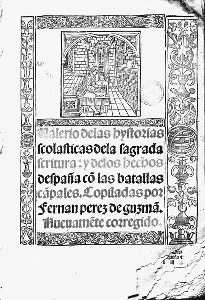 Valerio delas hystorias
scolasticas dela sagrada
scritura: y delos hechos
despaña cõ las batallas
cãpales. Copiladas por
Fernan perez de guzmã.
Nueuamẽte corregido.